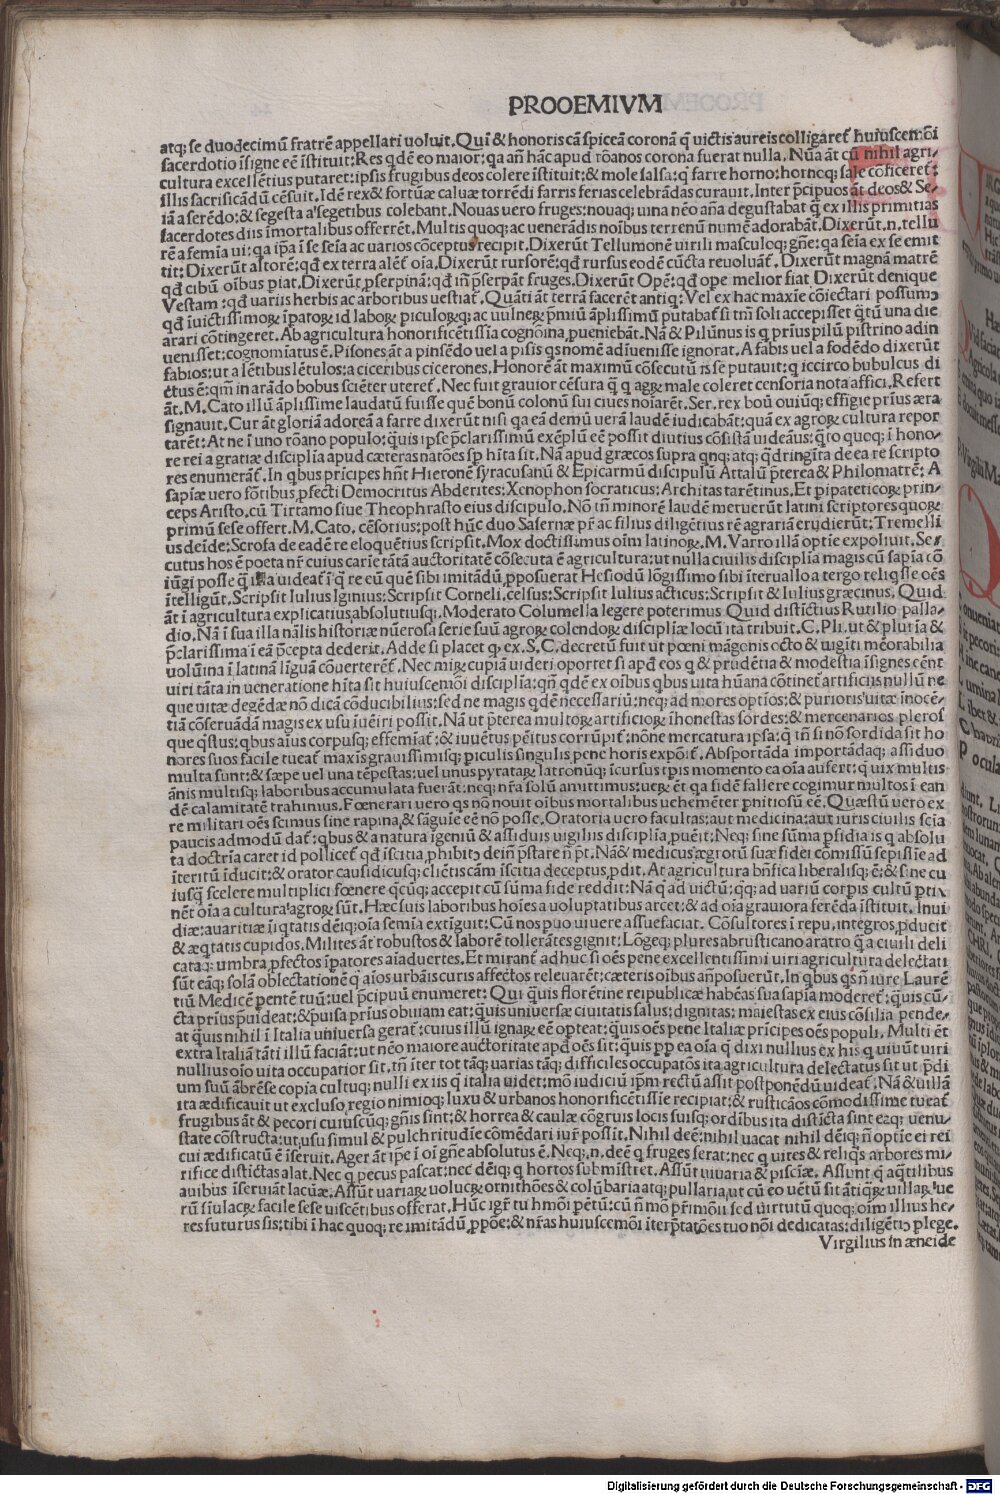 PROOEMIVM
atq; se duodecimũ fratrẽ appellari uoluit. Quĩ & honoris cã spiceã coronã q̃ uictis aureis colligaret̃ huiuscemõi
sacerdotio ĩsigne eẽ ĩstituit: Res qdẽ eo maior: qa añ hãc apud rõanos corona fuerat nulla. Nũa ãt cũ nihil agri-
cultura excellẽtius putaret: ipsis frugibus deos colere ĩstituit: & mole salsa: q̃ farre horno: hornoq; sale cõficeret̃:
illis sacrificãdũ cẽsuit. Idẽ rex & fortuæ caluæ torrẽdi farris ferias celebrãdas curauit. Inter p̃cipuos ãt deos & Se-
iã a serẽdo: & segesta a segetibus colebant. Nouas uero fruges: nouaq; uina nẽo aña degustabat q̃ ex illis primitias
sacerdotes diis ĩmortalibus offerrẽt. Multis quoq; ac uenerãdis noĩbus terrenũ numẽ adorabãt. Dixerũt .n. tellu
rẽ a femĩa ui: qa ip̃a ĩ se seĩa ac uarios cõceptus recipit. Dixerũt Tellumonẽ uirili masculoq; gñe: qa seĩa ex se emit
tit: Dixerũt altorẽ: qd̃ ex terra alẽt̃ oĩa. Dixerũt rursorẽ: qd̃ rursus eodẽ cũcta reuoluãt̃. Dixerũt magnã matrẽ
qd̃ cibũ oĩbus p̃iat. Dixerũt p̃serpinã: qd̃ iñ p̃serpãt fruges. Dixerũt Opẽ: qd̃ ope melior fiat Dixerũt denique
Vestam: qd̃ uariis herbis ac arboribus uestiat̃. Quãti ãt terrã facerẽt antiq: Vel ex hac maxĩe cõiectari possumɔ
qd̃ ĩuictissimoꝝ ĩp̃atoꝝ id laboꝝ piculoꝝq; ac uulneꝝ p̃miũ ãplissimũ putabat̃ si tm̃ soli accepisset q̃tũ una die
arari cõtingeret. Ab agricultura honorificẽtissĩa cognoĩna pueniebãt. Nã & Pilũnus is q prĩus pilũ pistrino adin
uenisset: cognomĩatus ẽ. Pisones ãt a pinsẽdo uel a pisis qs nomẽ adĩuenisse ignorat. A fabis uel a fodẽdo dixerũt
fabios: ut a lẽtibus lẽtulos: a ciceribus cicerones. Honorẽ ãt maximũ cõsecutũ is se putauit: q iccirco bubulcus di
ctus ẽ: qm̃ in arãdo bobus sciẽter uteret̃. Nec fuit grauior cẽsura q̃ q agꝝ male coleret censoria nota affici. Refert
ãt. M. Cato illũ ãplissime laudatũ fuisse quẽ bonũ colonũ sui ciues noĩarẽt. Ser. rex boũ ouiũq; effigie prĩus æra
signauit. Cur ãt gloriã adoreã a farre dixerũt nisi qa eã demũ uerã laudẽ iudicabãt: quã ex agroꝝ cultura repor
tarẽt: At ne ĩ uno rõano populo: q̃uis ipse p̃clarissimũ exẽplũ eẽ possit diutius cõsistã uideãus: q̃to quoq; ĩ hono-
re rei a gratiæ disciplĩa apud cæteras natões sp̃ hĩta sit. Nã apud græcos supra qnq; atq; q̃dringĩta de ea re scripto
res enumerãt̃. In qbus prĩcipes hñt Hieronẽ syracusanũ & Epicarmũ discipulũ Attalũ p̃terea & Philomatrẽ: A
sapiæ uero fõtibus pfecti Democritus Abderites: Xenophon socraticus: Architas tarẽtinus. Et p̃ipateticoꝝ prin-
ceps Aristo. cũ Tirtamo siue Theophrasto eius discipulo. Nõ tñ minorẽ laudẽ meruerũt latini scriptores quoꝝ
primũ sese offert. M. Cato. cẽsorius: post hũc duo Sasernæ pr̃ ac filius diligẽtius rẽ agrariã erudierũt: Tremelli
us deĩde: Scrofa de eadẽ re eloquẽtius scripsit. Mox doctissimus oĩm latinoꝝ. M. Varro illã optĩe expoliuit. Se-
cutus hos ẽ poeta nr̃ cuius carĩe tãtã auctoritatẽ cõsecuta ẽ agricultura: ut nulla ciuilis disciplĩa magis cũ sapĩa cõ
iũgi posse q̃ illa uideat̃ ĩ q̃ re eũ quẽ sibi imitãdũ pposuerat Hesiodũ lõgissimo sibi ĩteruallo a tergo reliq̃sse oẽs
ĩtelligũt. Scripsit Iulius Iginius: Scripsit Corneli. celsus: Scripsit Iulius acticus: Scripsit & Iulius græcinus. Quid
ãt ĩ agricultura explicatius, absolutiusq; Moderato Columella legere poterimus Quid distĩctius Rutilio palla-
dio. Nã ĩ sua illa nãlis historiæ nũerosa serie suũ agroꝝ colendoꝝ disciplĩæ locũ ita tribuit. C. Pli. ut & plurĩa &
p̃clarissima ĩ eã p̃cepta dederit. Adde si placet q ex. S. C. decretũ fuit ut pœni mãgonis octo & uigĩti mẽorabilia
uolũina ĩ latinã lĩguã cõuerterẽt̃. Nec miꝝ cupiã uideri oportet si apd̃ eos q & prudẽtia & modestia ĩsignes eẽnt
uiri tãta in ueneratione hĩta sit huiuscemõi disciplĩa: qñ qdẽ ex oĩbus qbus uita hũana cõtinet̃ artificiis nullũ ne
que uitæ degẽdæ nõ dicã cõducibilius: sed ne magis qdẽ necessariũ: neq; ad mores optĩos: & purioris uitæ inocẽ-
tiã cõseruãdã magis ex usu ĩuẽiri possit. Nã ut p̃terea multoꝝ artificioꝝ ĩhonestas sordes: & mercenarios plerosꝭ
que q̃stus: qbus aĩus corpusq; effemĩat̃: & iuuẽtus pẽitus corrũpit̃: nõne mercatura ipsa: q̃ tñ si nõ sordida sit ho
nores suos facile tueat̃ maxis grauissimisq; piculis singulis pene horis expõit̃. Absportãda importãdaq; assiduo
multa sunt: & sæpe uel una tẽpestas: uel unus pyrataꝝ latronũq; ĩcursus tp̃is momento ea oĩa aufert: q̃ uix multis
ãnis multisq; laboribus accumulata fuerãt: neq; nr̃a solũ amittimus: ueꝝ ẽt qa fidẽ fallere cogimur multos ĩ ean
dẽ calamitatẽ trahimus. Fœnerari uero qs nõ nouit oĩbus mortalibus uehemẽter p̃nitiosũ eẽ. Quæstũ uero ex
re militari oẽs scimus sine rapina & sãguĩe eẽ nõ posse. Oratoria uero facultas: aut medicina: aut iuris ciuilis scĩa
paucis admodũ dat̃: qbus & a natura ĩgeniũ & assiduis uigiliis disciplĩa p̃uẽit: Neq; sine sũma p̃fidia is q absolu
ta doctrĩa caret id pollicet̃ qd̃ ĩscitia phibitɔ deiñ p̃stare ñ p̃t. Nã & medicus ægrotũ suæ fidei comissũ sepissĩe ad
ĩteritũ ĩducit: & orator causidicusq; cliẽtis cãm ĩscitia deceptus pdit. At agricultura bñfica liberalisq; ẽ: & sine cu
iusq; scelere multiplici fœnere q̃cũq; accepit cũ sũma fide reddit: Nã q̃ ad uictũ: q̃q; ad uariũ corpis cultũ p̃tĩx
nẽt oĩa a cultura agroꝝ sũt. Hæc suis laboribus hoĩes a uoluptatibus arcet: & ad oĩa grauiora ferẽda ĩstituit. Inui
diæ: auaritiæ ĩiq̃tatis dẽiq; oĩa semĩa extĩguit: Cũ nos puo uiuere assuefaciat. Cõsultores ĩ repu. integros p̃ducit
& æq̃tatis cupidos. Milites ãt robustos & laborẽ tollerãtes gignit: Lõgeq; plures ab rusticano aratro q̃ a ciuili deli
cataq; umbra pfectos ĩp̃atores aĩaduertes. Et mirant̃ adhuc si oẽs pene excellentissimi uiri agricultura delectati
sũt eãq; solã oblectationẽ q̃ aĩos urbãis curis affectos releuarẽt: cæteris oĩbus añposuerũt. In qbus qs ñ iure Laurẽ
tiũ Medicẽ pentẽ tuũ: uel p̃cipuũ enumeret: Qui q̃uis florẽtinæ reipublicæ habẽas sua sapĩa moderet̃: q̃uis cũ-
cta prĩus puideat: & p̃uisa prĩus obuiam eat: q̃uis uniuersæ ciuitatis salus: dignitas: maiestas ex eius cõsilia pende-
at q̃uis nihil ĩ Italia uniuersa gerat̃: cuius illũ ignaꝝ eẽ opteat: q̃uis oẽs pene Italiæ prĩcipes oẽs populi. Multi ẽt
extra Italiã tãti illũ faciãt: ut nẽo maiore auctoritate apd̃ oẽs sit: q̃uis pp ea oĩa q dixi nullius ex his q uiuũt uiri
nullius oĩo uita occupatior sit. tñ ĩter tot tãq; uarias tãq; difficiles occupatõs ita agricultura delectatus sit ut p̃di
um suũ ãbrẽse copia cultuq; nulli ex iis q̃ italia uidet: mõ iudiciũ ip̃m rectũ assit postponẽdũ uideat̃. Nã & uillã
ita ædificauit ut excluso, regio nimioq; luxu & urbanos honorificẽtissĩe recipiat: & rusticãos cõmodissime tueat̃
frugibus ãt & pecori cuiuscũq; gñis sint: & horrea & caulæ cõgruis locis suisq; ordĩbus ita distĩcta sint ezq; uenu-
state cõstructa: ut, usu simul & pulchritudĩe cõmẽdari iur̃ possit. Nihil deẽ: nihil uacat nihil dẽiq; ñ optĩe ei rei
cui ædificatũ ẽ ĩseruit. Ager ãt ip̃e ĩ oĩ gñe absolutus ẽ. Neq; .n. deẽ q̃ fruges ferat: nec q uites & reliq̃s arbores mi-
rifice distĩctas alat. Nec q pecus pascat: nec dẽiq; q hortos submĩstret. Assũt uiuaria & piscĩæ. Assunt q̃ aq̃tilibus
auibus ĩseruiãt lacũæ. Assũt uariaꝝ uolucꝝ ornithões & colũbaria atq; pullaria, ut cũ eo uẽtũ sit ãtiqꝝ uillaꝝ ue
rũ siulacꝝ offerat facile sese uiscẽtibus offerat. Hũc igr̃ tu hmõi pẽtũ: cũ ñ mõ p̃rimõii sed uirtutũ quoq; oĩm illius he-
res futurus sis: tibi ĩ hac quoq; re imitãdũ ppõe: & nr̃as huiuscemõi iterp̃tatões tuo nõi dedicatas: diligẽtɔ plege.
Virgilius in æneide